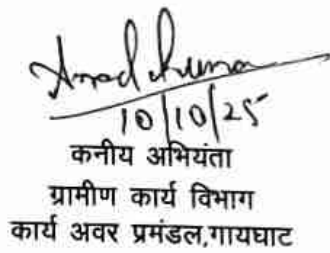 10/10/25
कनीय अभियंता
ग्रामीण कार्य विभाग
कार्य अवर प्रमंडल,गायघाट